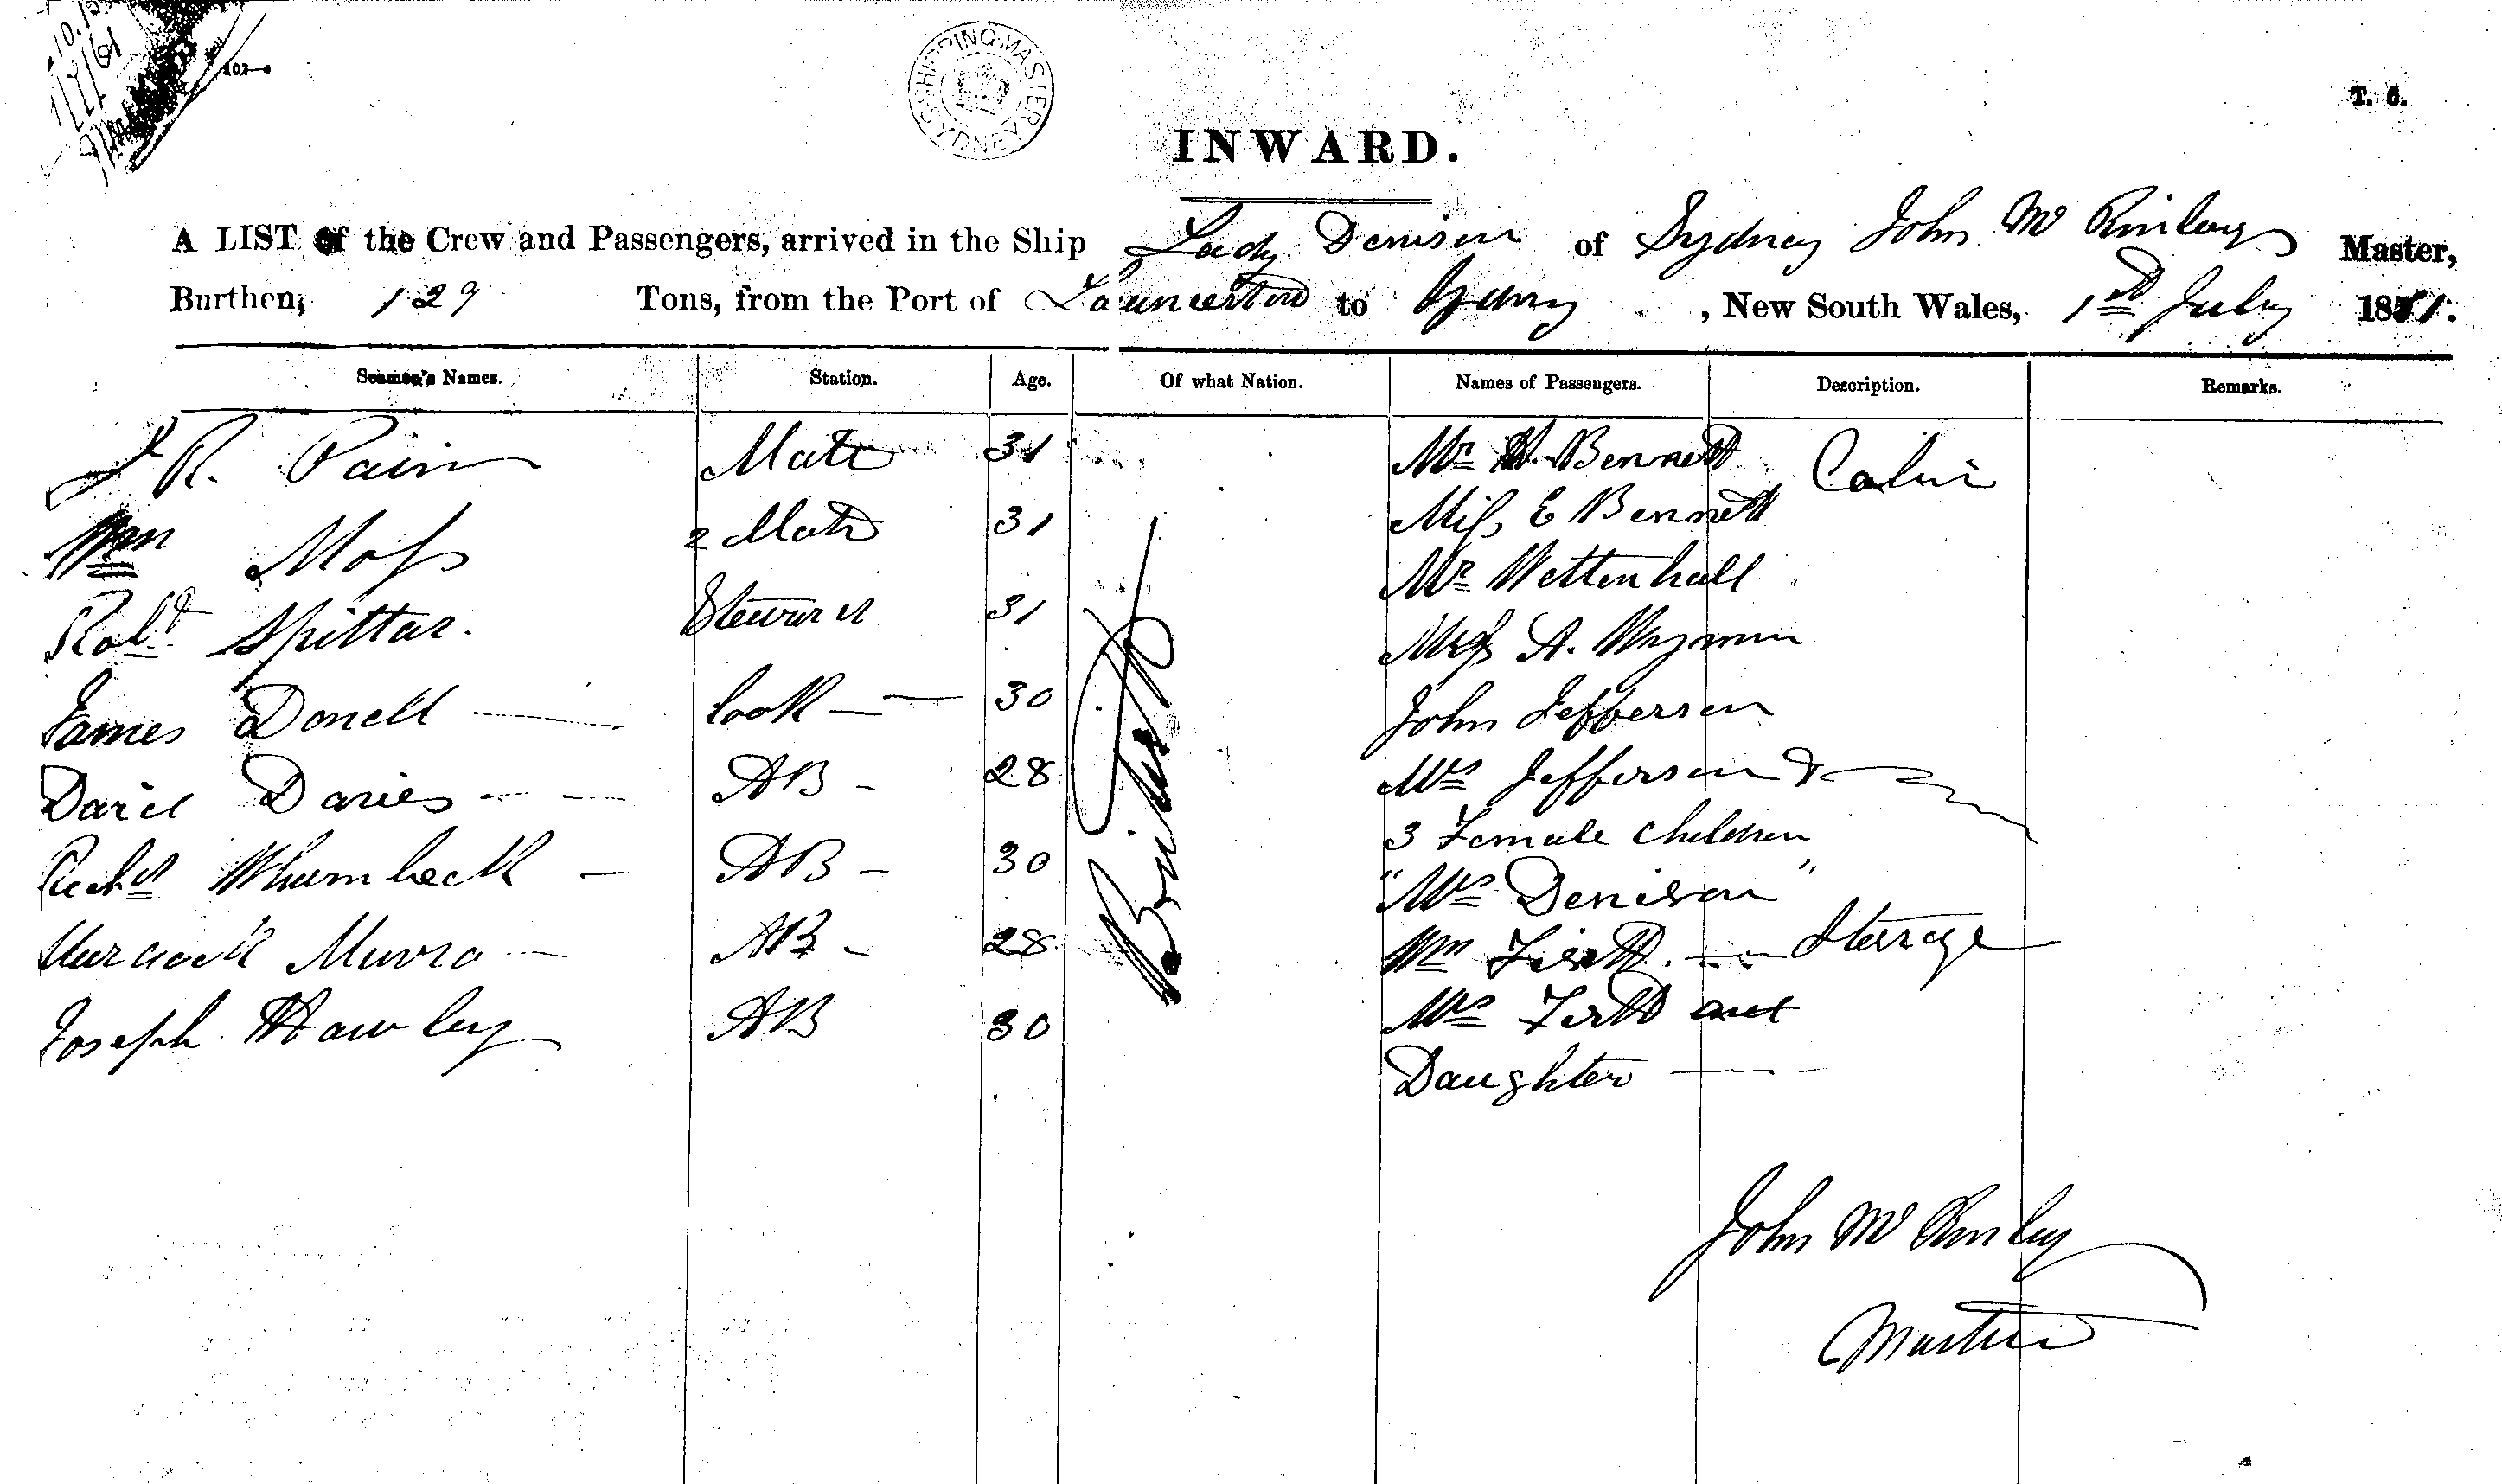 102—
SHIPPING MASTER SYDNEY
T. 6.
INWARD.
A LIST of the Crew and Passengers, arrived in the Ship Lady Denison of Sydney John Mc Kinlay Master,
Burthen, 129 Tons, from the Port of Launceston to Sydney, New South Wales, 1st July 1851.
Seamen's Names. Station. Age. Of what Nation. Names of Passengers. Description. Remarks.
R. Pain Mate 31 Mr Bennett Cabin
Wm Moss 2 Mate 31 Miss E Bennett
Robt Spittar. Steward 31 Mr Wettenhall
James Donell Cook 30 A.
David Davies AB 28 John Jefferson
Richd AB 30 Mrs Jefferson &
Murdock Munro AB 28 3 Female Children
Joseph Hawley AB 30 "Mrs Denison"
British
Wm Steerage
Mrs and
Daughter
John Mc Kinlay
Master